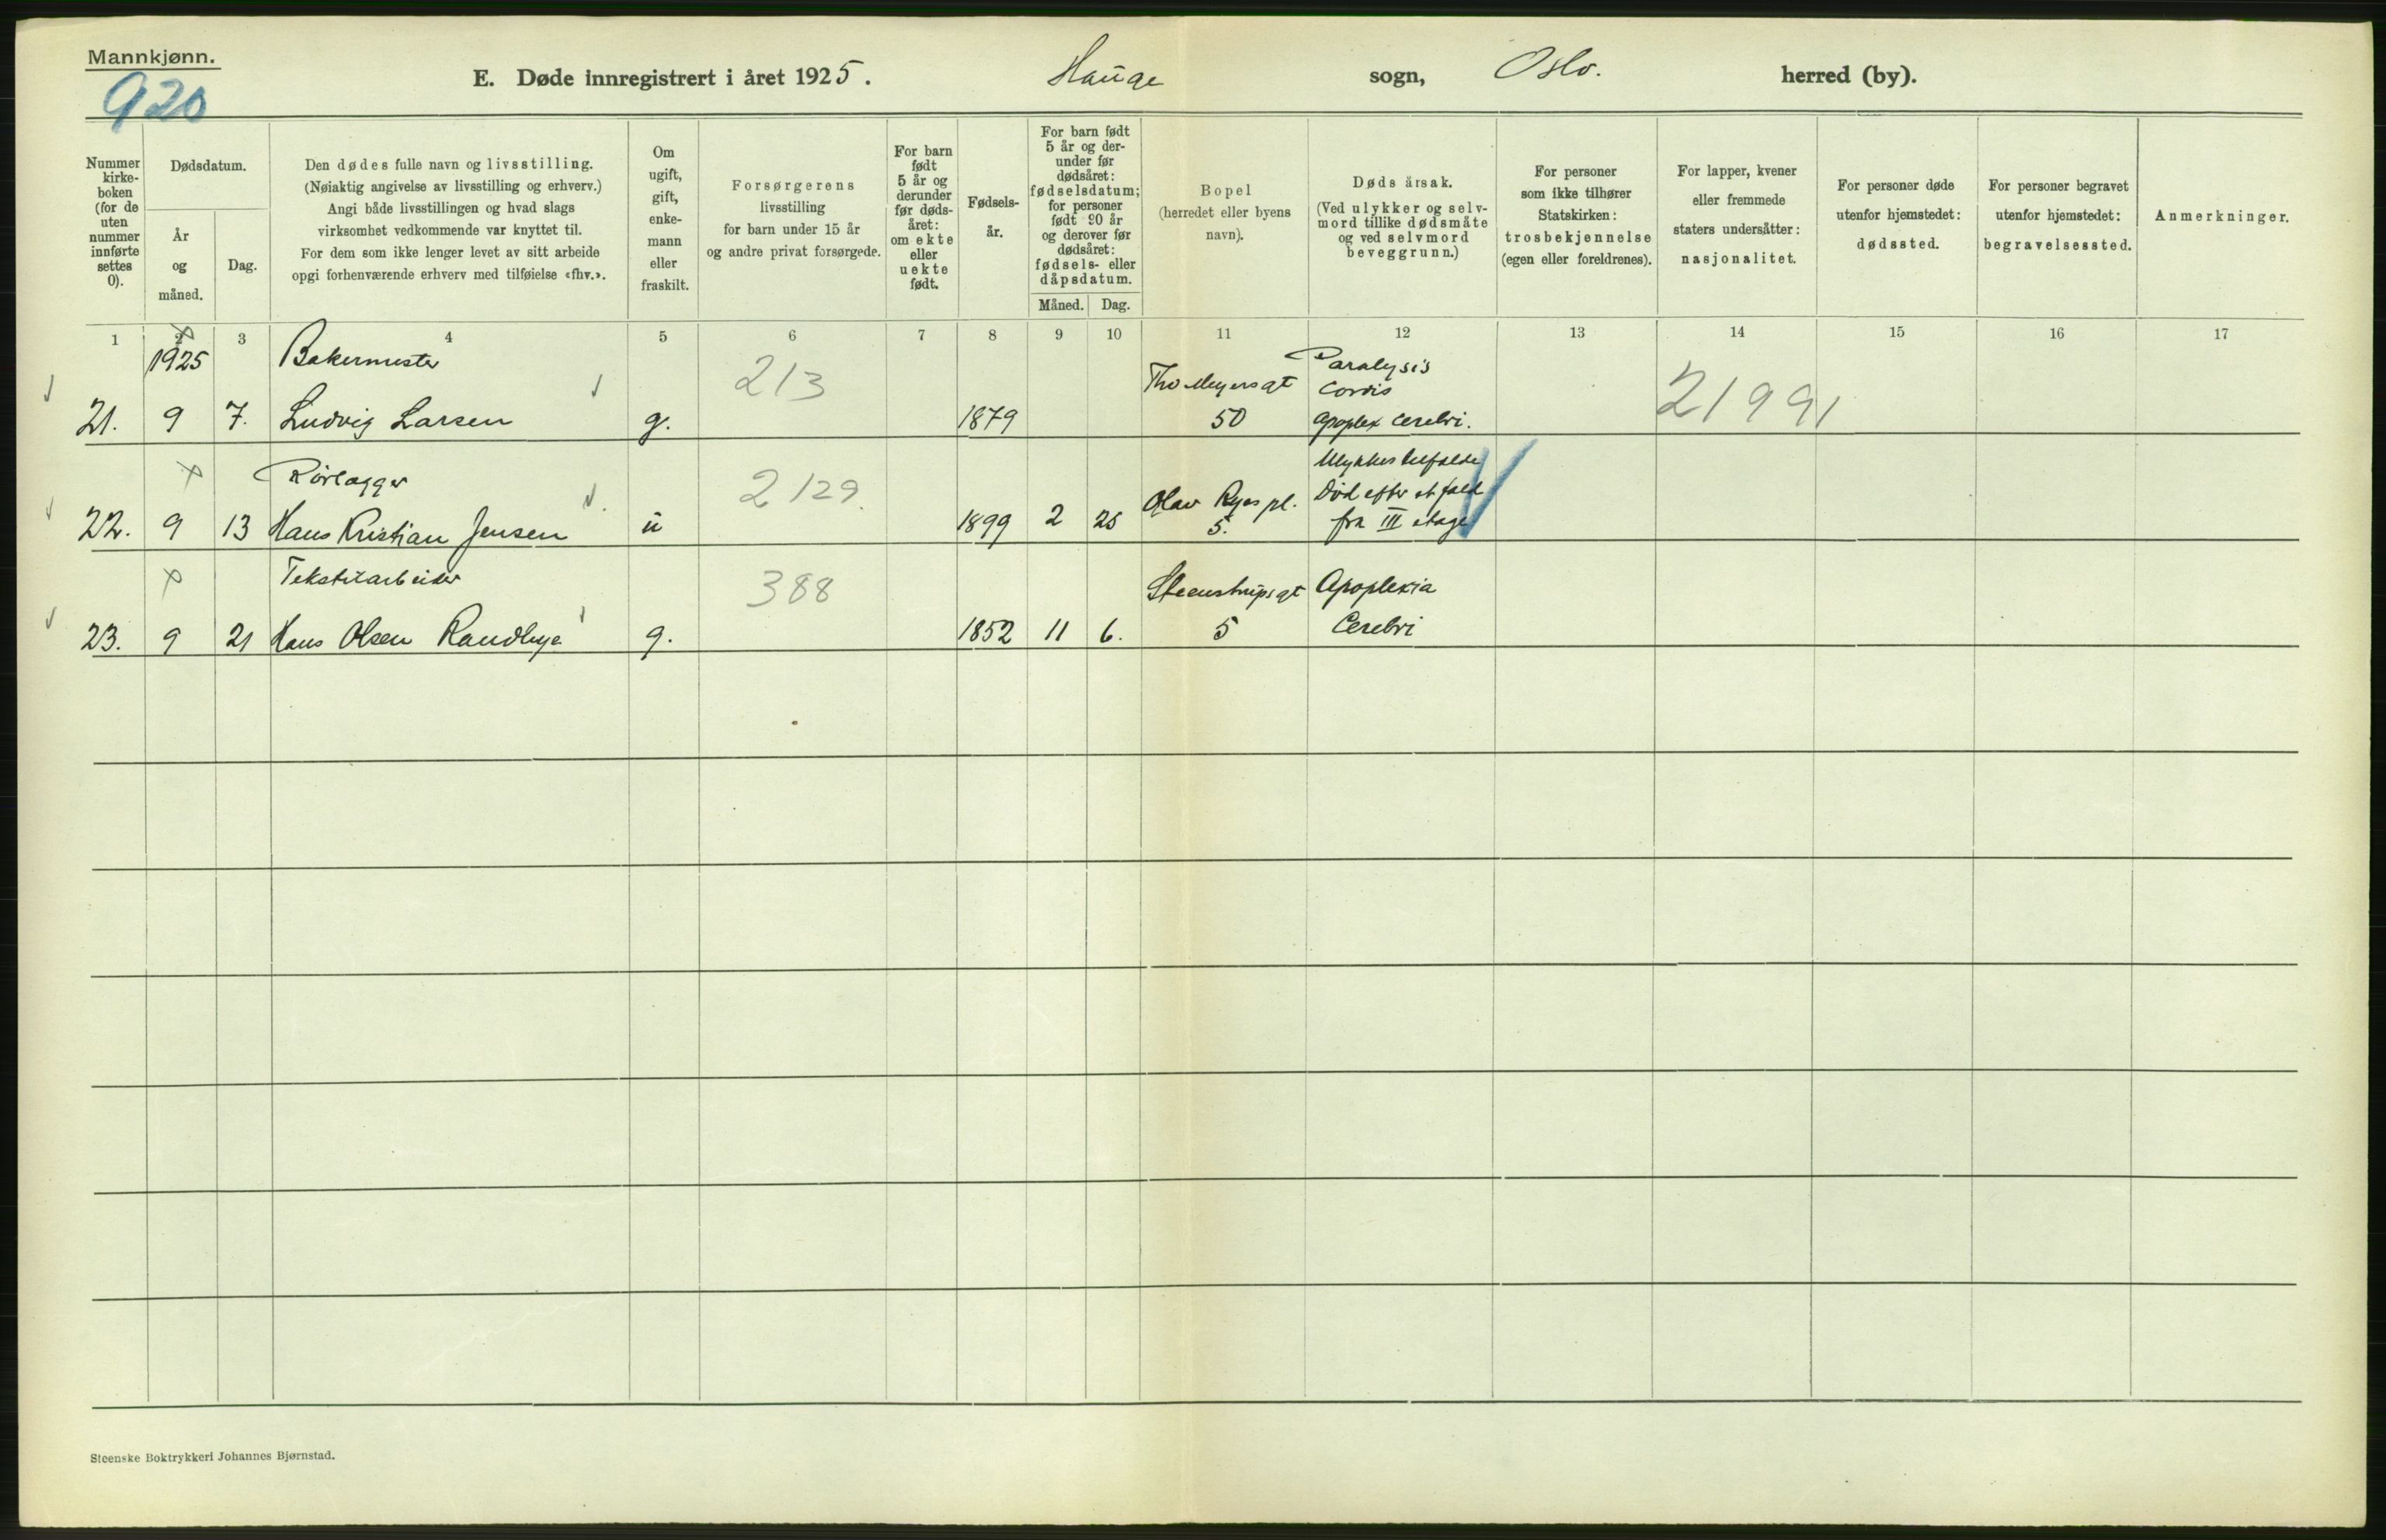 Mannkjønn.
920
E. Døde innregistrert i året 1925. Hauge sogn, Oslo. herred (by).
Nummer
kirke-
boken
(for de
uten
nummer
innførte
settes
0).
Dødsdatum.
År
og
måned.
Dag.
Den dødes fulle navn og livsstilling.
(Nøiaktig angivelse av livsstilling og erhverv.)
Angi både livsstillingen og hvad slags
virksomhet vedkommende var knyttet til.
For dem som ikke lenger levet av sitt arbeide
opgi forhenværende erhverv med tilføielse «fhv.».
Om
ugift,
gift,
enke-
mann
eller
fraskilt.
Forsørgerens
livsstilling
for barn under 15 år
og andre privat forsørgede.
For barn
født
5 år og
derunder
før døds-
året:
om ekte
eller
uekte
født.
Fødsels-
år.
For barn født
5 år og der-
under før
dødsåret:
fødselsdatum;
for personer
født 90 år
og derover før
dødsåret:
fødsels- eller
dåpsdatum.
Måned. Dag.
Bopel
(herredet eller byens
navn).
Dødsårsak.
(Ved ulykker og selv-
mord tillike dødsmåte
og ved selvmord
beveggrunn.)
For personer
som ikke tilhører
Statskirken:
trosbekjennelse
(egen eller foreldrenes).
For lapper, kvener
eller fremmede
staters undersåtter:
nasjonalitet.
For personer døde
utenfor hjemstedet:
dødssted.
For personer begravet
utenfor hjemstedet:
begravelsessted.
Anmerkninger.
1 2 3 4 5 6 7 8 9 10 11 12 13 14 15 16 17
1925 Bakermester 213 Tho Meyersgt Paralysis
Cordis 21991
21. 9 7. Ludvig Larsen g. 1879 50 Apoplex cerebri.
Rørlægger 2129. Olav Ryes pl. Ulykkestilfælde
Død efter et fald
22. 9 13 Hans Kristian Jensen u 1899 2 25 5. fra III etage
Tekstilarbeider 388 Steenstrupsgt Apoplexia
23. 9 21 Hans Olsen g. 1852 11 6. 5 Cerebri
Steenske Boktrykkeri Johannes Bjørnstad.